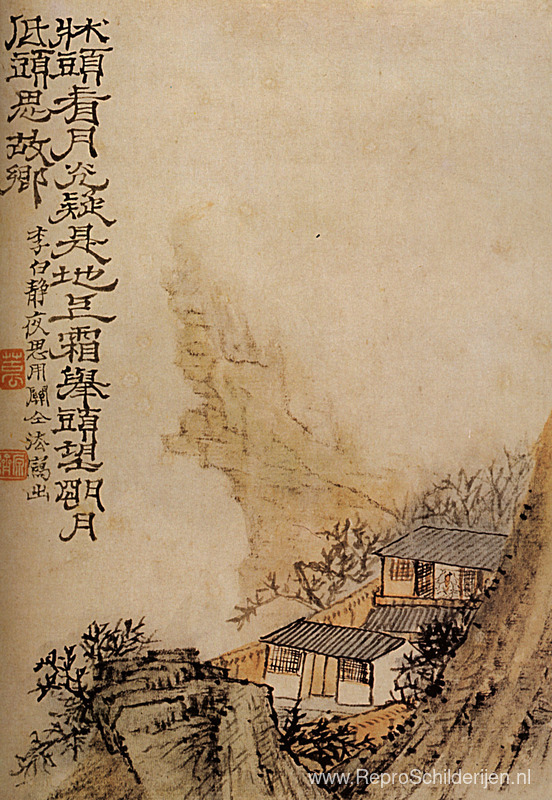 牀頭看月光疑是地上霜舉頭望朙月
低頭思故鄉
李白靜夜思用關仝法寫出
www.ReproSchilderijen.nl